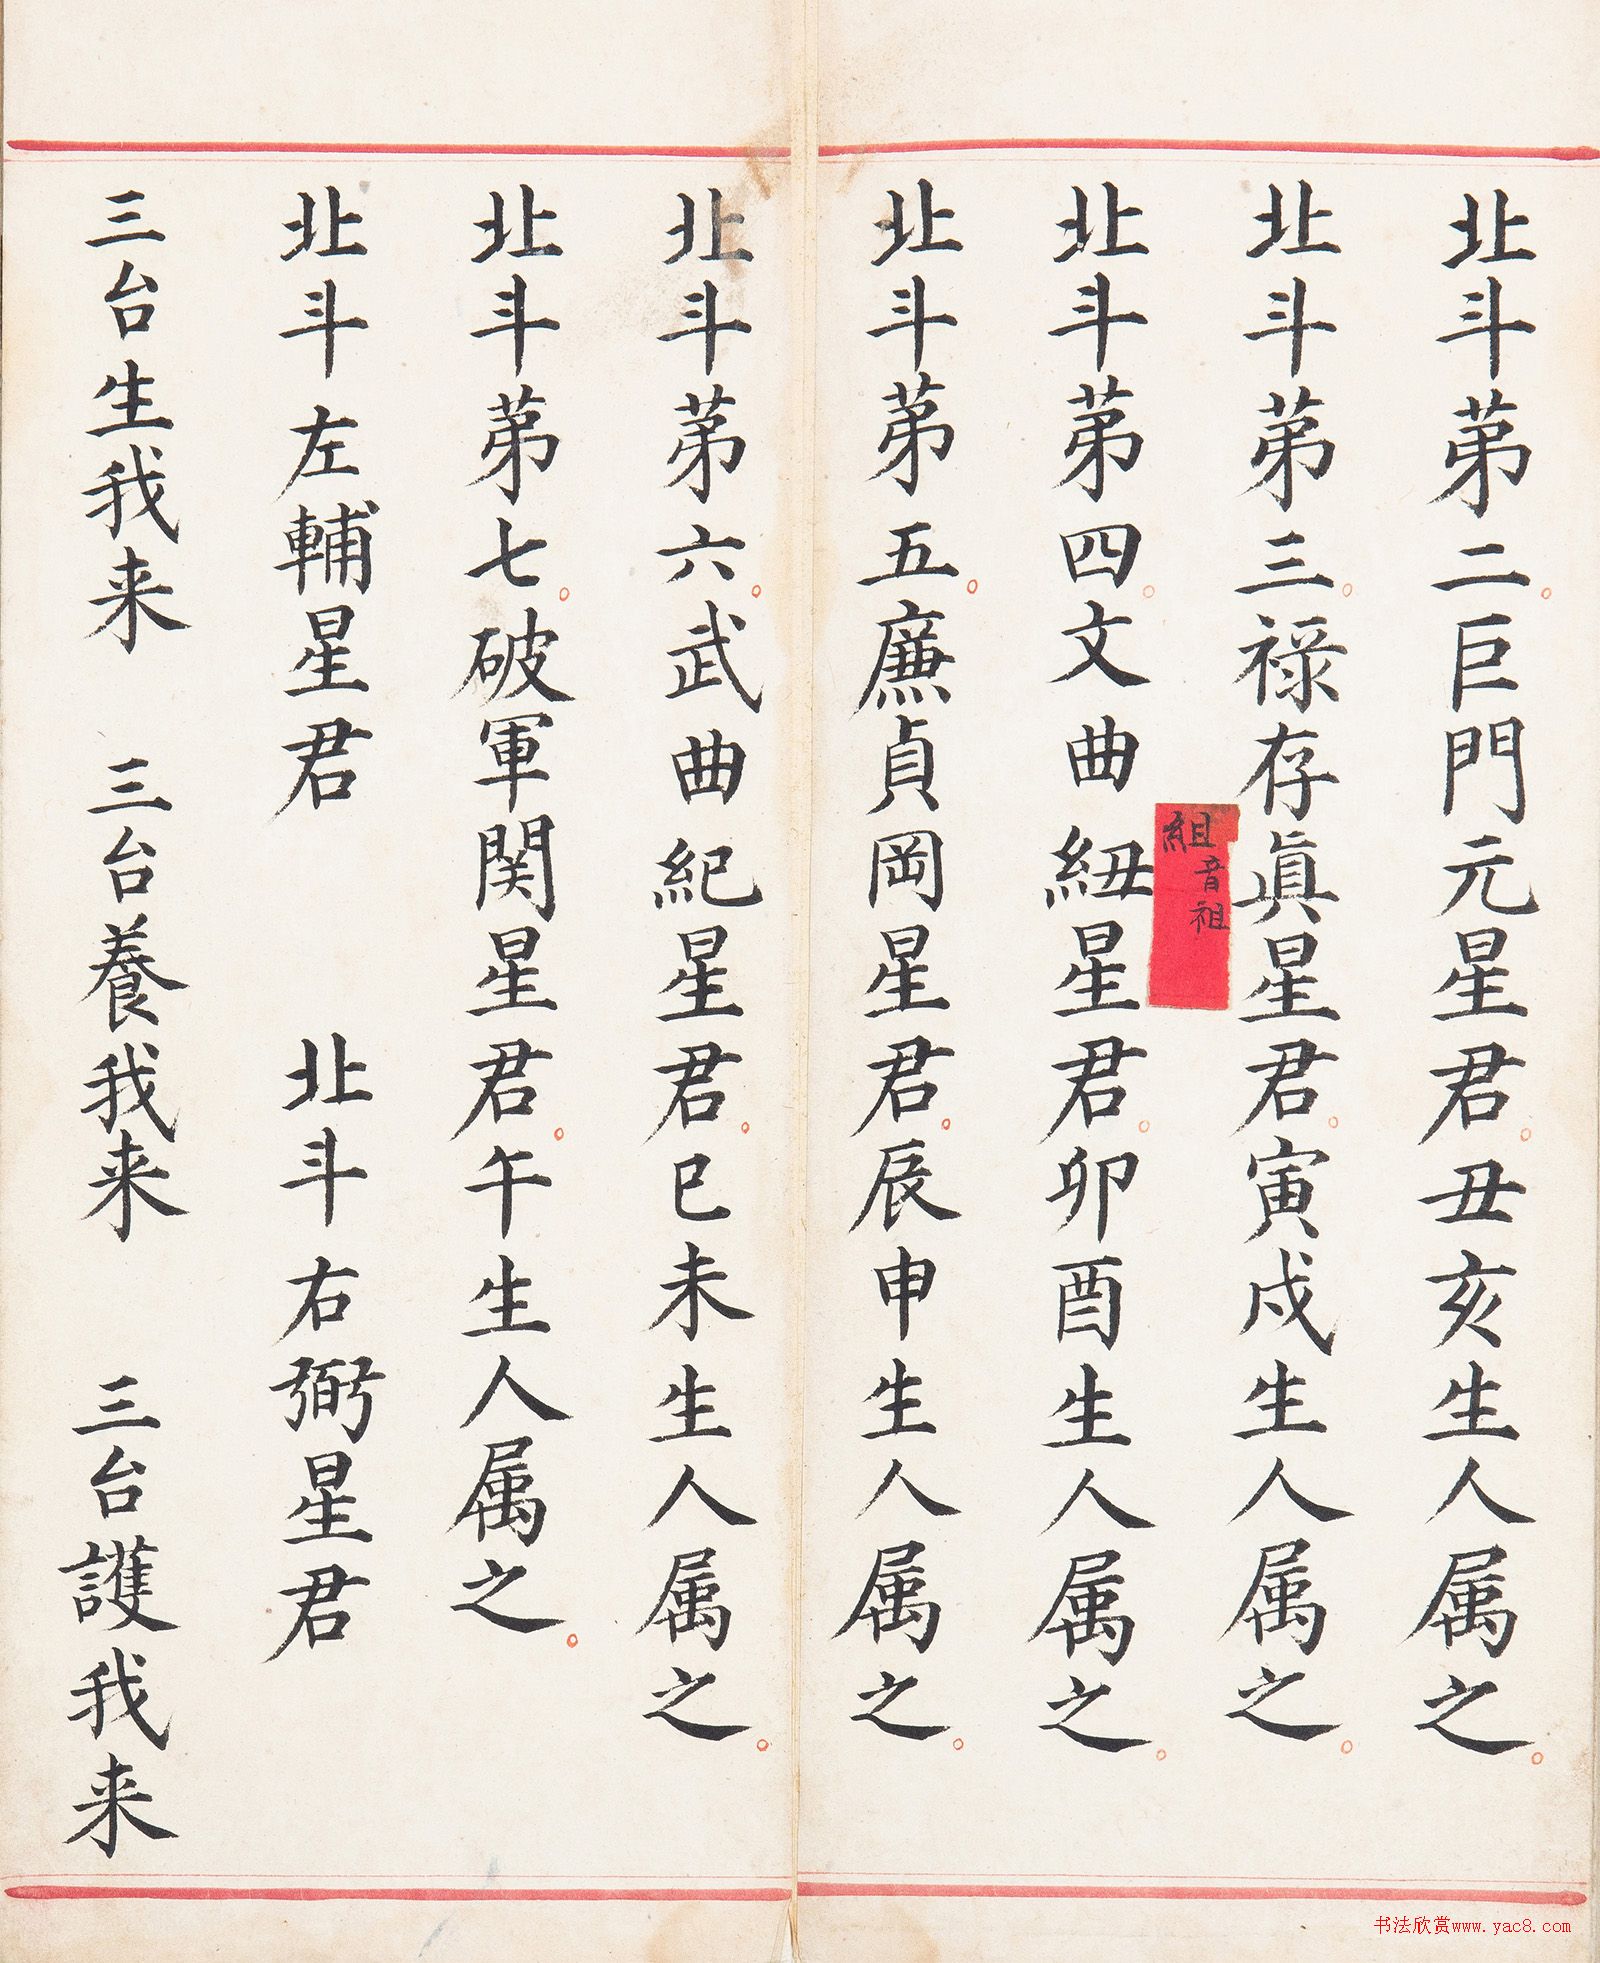 北斗第二巨門元星君丑亥生人属之
北斗第三禄存真星君寅戌生人属之
組
音
祖
北斗第四文曲紐星君卯酉生人属之
北斗第五廉貞岡星君辰申生人属之
北斗第六武曲紀星君巳未生人属之
北斗第七破軍関星君午生人属之
北斗左輔星君 北斗右弼星君
三台生我来 三台養我来 三台護我来
书法欣赏www.yac8.com